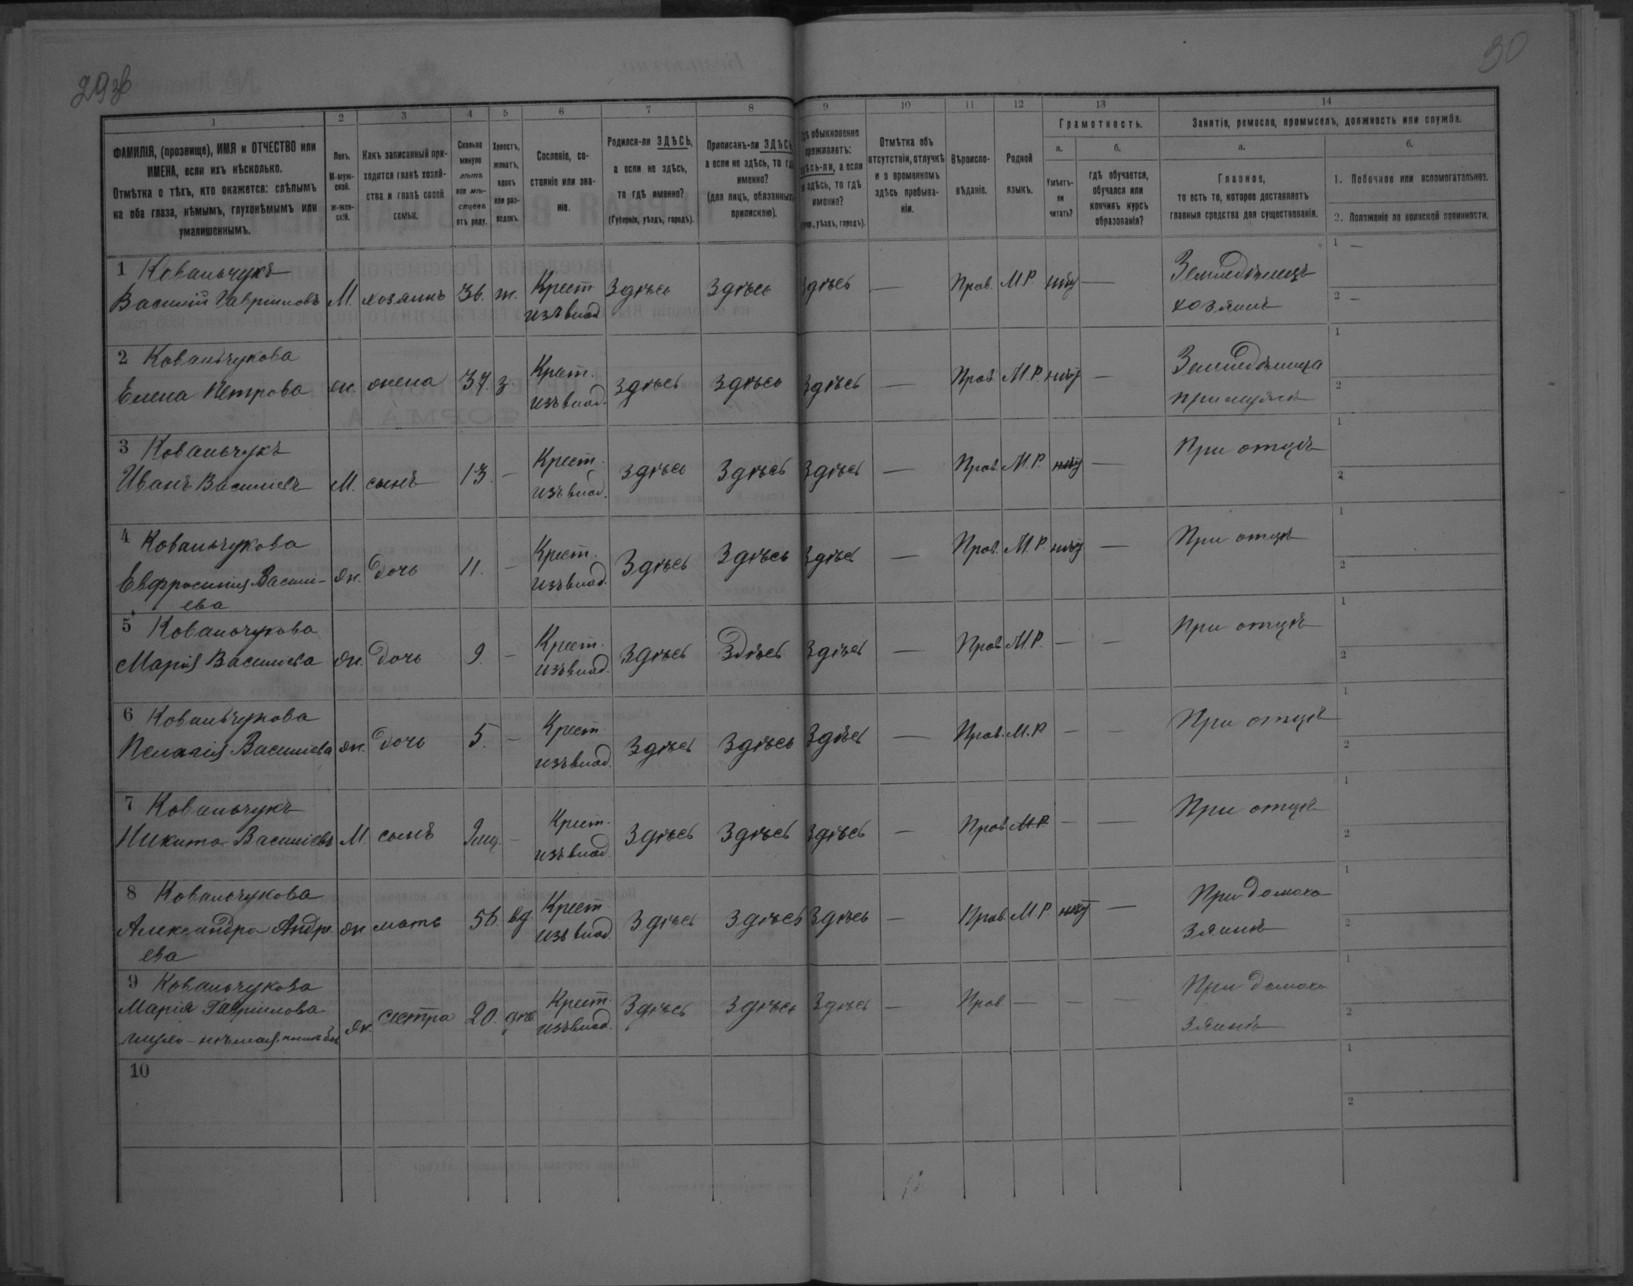 29 об
30
1 2 3 4 5 6 7 8 9 10 11 12 13 14
ФАМИЛІЯ, (прозвище), ИМЯ и ОТЧЕСТВО или ИМЕНА, если ихъ нѣсколько.
Отмѣтка о тѣхъ, кто окажется: слѣпымъ на оба глаза, нѣмымъ, глухонѣмымъ или умалишеннымъ.
Полъ.
М-мужской.
ж-женскій.
Какъ записанный приходится главѣ хозяйства и главѣ своей семьи.
Сколько минуло лѣтъ или мѣсяцевъ отъ роду.
Холостъ, женатъ, вдовъ или разведенъ.
Сословіе, состояніе или званіе.
Родился-ли ЗДѢСЬ,
а если не здѣсь,
то гдѣ именно?
(Губернія, уѣздъ, городъ).
Приписанъ-ли ЗДѢСЬ
а если не здѣсь, то гдѣ
именно?
(для лицъ, обязанныхъ
припискою).
обыкновенно
проживаетъ:
здѣсь-ли, а если
здѣсь, то гдѣ
именно?
уѣздъ, городъ).
Отмѣтка объ
отсутствіи, отлучкѣ
и о временномъ
здѣсь пребываніи.
Вѣроисповѣданіе.
Родной
языкъ.
Грамотность.
а.
Умѣетъ-ли
читать?
б.
гдѣ обучается,
обучался или
кончилъ курсъ
образованія?
Занятіе, ремесло, промыселъ, должность или служба.
а.
Главное,
то есть то, которое доставляетъ
главныя средства для существованія.
б.
1. Побочное или вспомогательное.
2. Положеніе по воинской повинности.
1 Ковальчукъ
Василій Гавриловъ М. хозяинъ 36. ж. Крест. изъ влад. Здѣсь Здѣсь Здѣсь — Прав. М.Р. нѣт — Земледѣлецъ хозяинъ 1 — 2 —
2 Ковальчукова
Елена Петрова ж. жена 37. з Крест. изъ влад. здѣсь здѣсь здѣсь — Прав М.Р. нѣт — Земледѣлица при мужѣ 1 2
3 Ковальчукъ
Иванъ Васильевъ М. сынъ 13. — Крест. изъ влад. здѣсь Здѣсь Здѣсь — Прав М.Р. нѣт — При отцѣ 1 2
4 Ковальчукова
Евфросинія Василиева ж. Дочь 11. — Крест. изъ влад. Здѣсь Здѣсь Здѣсь — Прав. М.Р. нѣт — При отцѣ 1 2
5 Ковальчукова
Марія Василиева ж. Дочь 9. — Крест. изъ влад. Здѣсь Здѣсь Здѣсь — Прав М.Р. — — При отцѣ 1 2
6 Ковальчукова
Пелагія Василиева ж. Дочь 5. — Крест. изъ влад. Здѣсь Здѣсь Здѣсь — Прав. М.Р. — — При отцѣ 1 2
7 Ковальчукъ
Никита Василіевъ М. сынъ — Крест. изъ влад. Здѣсь Здѣсь Здѣсь — Прав М.Р. — — При отцѣ 1 2
8 Ковальчукова
Александра Андреева ж мать 56. вд Крест изъ влад. Здѣсь Здѣсь Здѣсь — Прав М.Р. нѣт — При домохозяинѣ 1 2
9 Ковальчукова
Марія Гаврилова
глухо-нѣмая ж. сестра 20. Крест изъ влад. Здѣсь Здѣсь Здѣсь — Прав — — — При домохозяинѣ 1 2
10 1 2